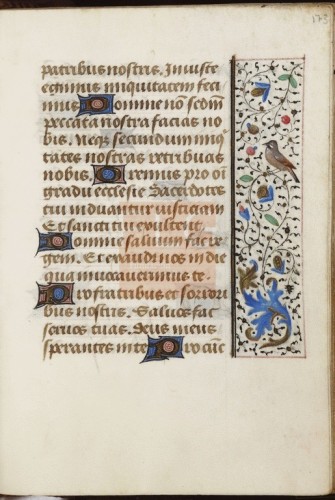 173
patribus nostris. Iniuste
egimus iniquitatem feci
mus Domine nō scdm̄
peccata nostra facias no
bis. Neq; secundum iniq̄
tates nostras retribuas
nobis Oremus pro oī
gradu ecclesie Sacerdotes
tui induantur iusticiam
Et sancti tui exultent.
Domine saluum fac re
gem. Et exaudi nos in die
qua inuocauerimus te.
Pro fratribus et sorori
bus nostris. Saluos fac
seruos tuos. Deus meus
sperantes in te Pro